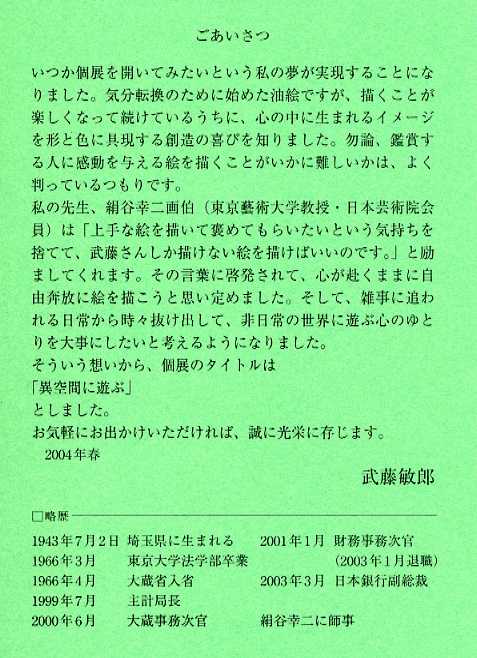 ごあいさつ
いつか個展を開いてみたいという私の夢が実現することにな
りました。気分転換のために始めた油絵ですが、描くことが
楽しくなって続けているうちに、心の中に生まれるイメージ
を形と色に具現する創造の喜びを知りました。勿論、鑑賞す
る人に感動を与える絵を描くことがいかに難しいかは、よく
判っているつもりです。
私の先生、絹谷幸二画伯（東京藝術大学教授・日本芸術院会
員）は「上手な絵を描いて褒めてもらいたいという気持ちを
捨てて、武藤さんしか描けない絵を描けばいいのです。」と励
ましてくれます。その言葉に啓発されて、心が赴くままに自
由奔放に絵を描こうと思い定めました。そして、雑事に追わ
れる日常から時々抜け出して、非日常の世界に遊ぶ心のゆと
りを大事にしたいと考えるようになりました。
そういう想いから、個展のタイトルは
「異空間に遊ぶ」
としました。
お気軽にお出かけいただければ、誠に光栄に存じます。
2004年春
武藤敏郎
□略歴
1943年7月2日 埼玉県に生まれる
1966年3月 東京大学法学部卒業
1966年4月 大蔵省入省
1999年7月 主計局長
2000年6月 大蔵事務次官
2001年1月 財務事務次官
（2003年1月退職）
2003年3月 日本銀行副総裁
絹谷幸二に師事